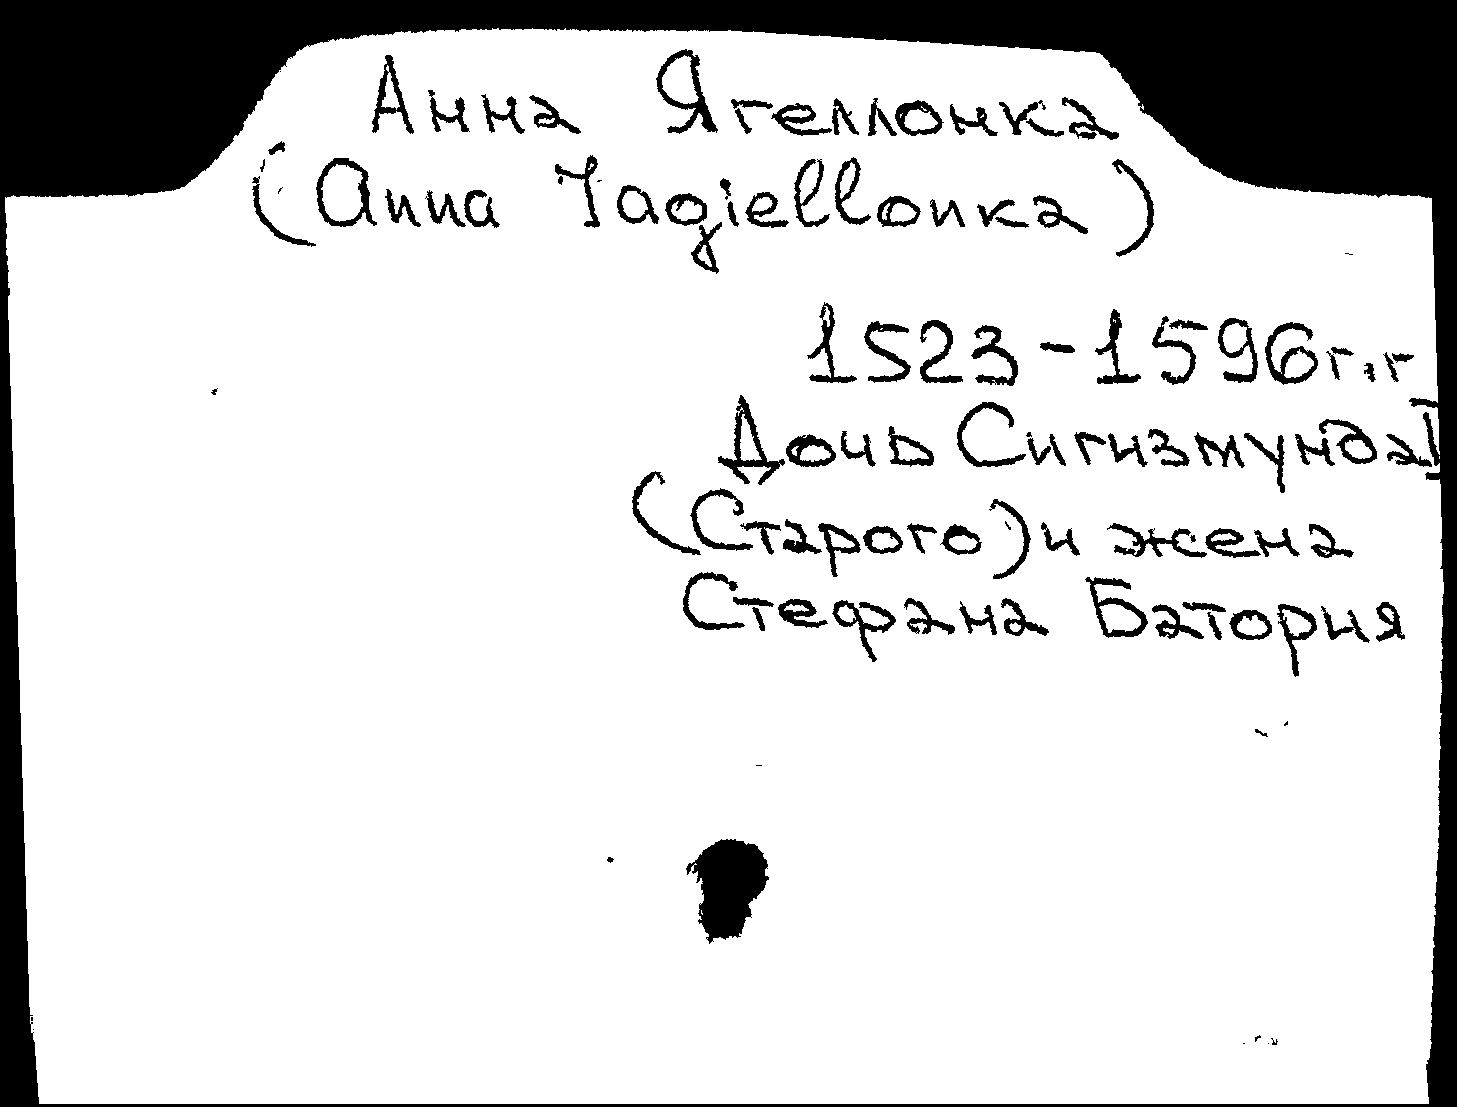 Анна Ягеллонка
(Anna Jagiellonka)
1523-1596 г.г
Дочь Сигизмунда I
(Старого) и жена
Стефана Батория